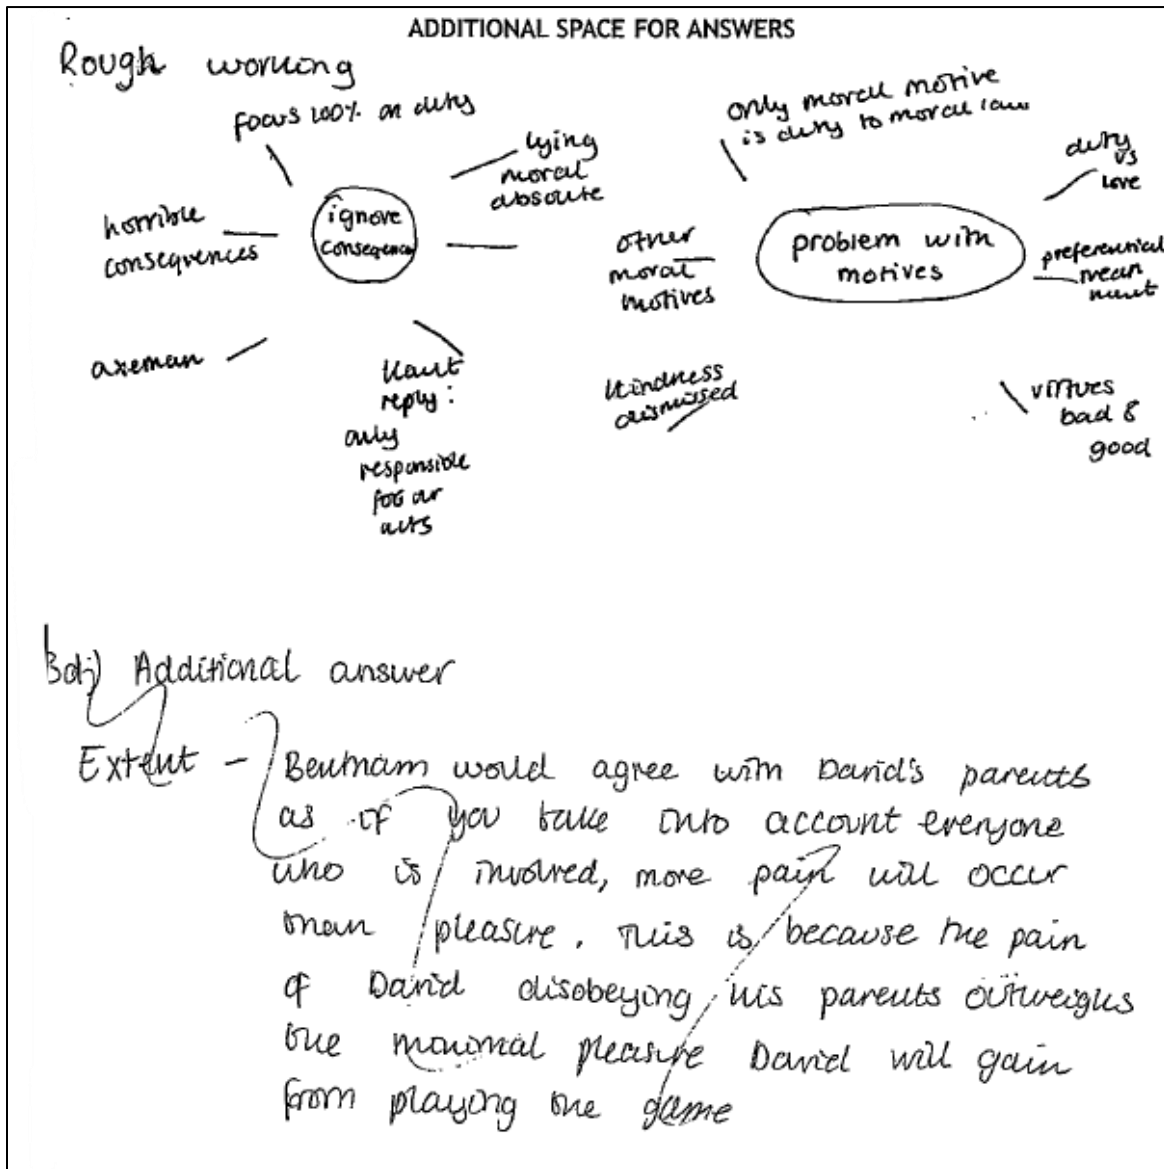 ADDITIONAL SPACE FOR ANSWERS
Rough working
focus 100% on duty
lying
moral
absoute
ignore
consequence
horrible
consequences
axeman
Kant
reply:
only
responsible
for our
acts
only moral motive
is duty to moral law
duty
vs
love
other
moral
motives
problem with
motives
preferential
kindness
dismissed
virtues
bad &
good
Additional answer
Extent - Bentham would agree with David's parents
as if you take into account everyone
who is involved, more pain will occur
than pleasure. This is because the pain
of David disobeying his parents outweighs
the minimal pleasure David will gain
from playing the game